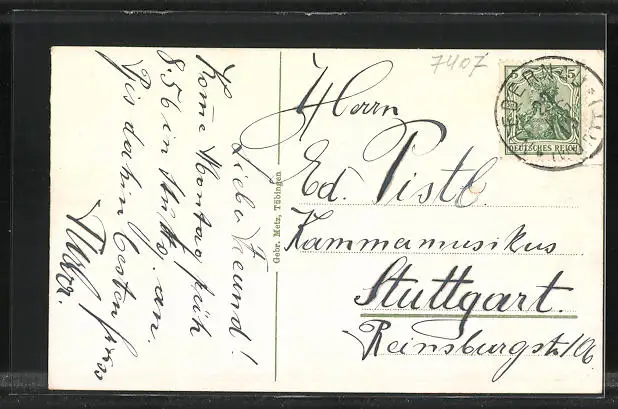 Lieber Freund!
Kome Montag früh
8.56 in Stuttg. an.
Bis dahin besten Gruss
Gebr. Metz, Tübingen
7407
5 5
DEUTSCHES REICH
Herrn
Ed. Pistl
Kammermusikus
Stuttgart.
Reinsburgstr.